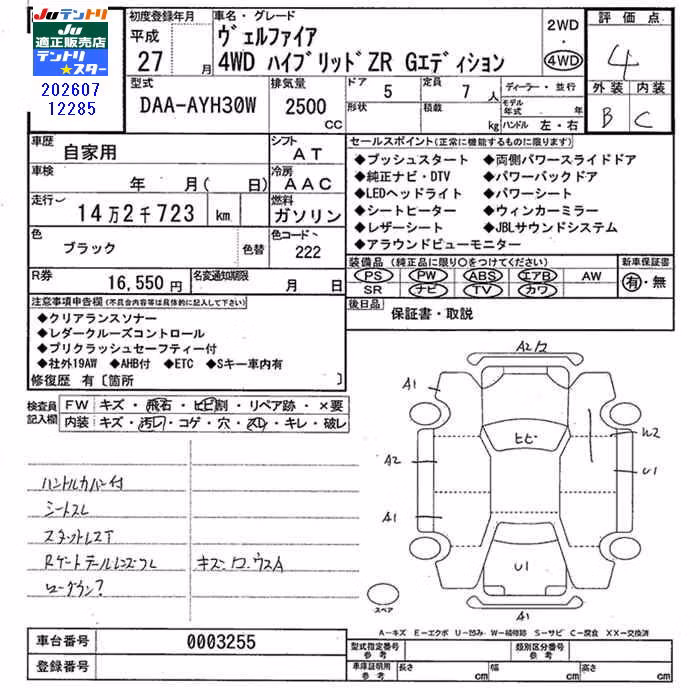 Juテントリ
Ju
適正販売店
テントリ
★スター
202607
12285
初度登録年月
平成
27 月
車名・グレード
ヴェルファイア
4WD ハイブリッドZR Gエディション
2WD
・
4WD
評価点
4
外装 内装
B C
型式
DAA-AYH30W
排気量
2500
CC
ドア 5
形状
定員 7 人
積載 kg
ディーラー・並行
モデル年式 年
ハンドル 左・右
車歴 自家用
シフト AT
車検 年 月( 日)
冷房 AAC
走行 14万2千723 km
燃料 ガソリン
色 ブラック 色替
色コード 222
R券 16,550 円
名変通知期限 月 日
セールスポイント(正常に機能するものに限ります)
◆プッシュスタート ◆両側パワースライドドア
◆純正ナビ・DTV ◆パワーバックドア
◆LEDヘッドライト ◆パワーシート
◆シートヒーター ◆ウィンカーミラー
◆レザーシート ◆JBLサウンドシステム
◆アラウンドビューモニター
装備品 (純正品に限り○をつけてください)
新車保証書
PS PW ABS エアB AW
SR ナビ TV カワ
有・無
後日品 保証書・取説
注意事項申告欄(不具合内容等は具体的に記入して下さい)
◆クリアランスソナー
◆レダークルーズコントロール
◆プリクラッシュセーフティー付
◆社外19AW ◆AHB付 ◆ETC ◆Sキー車内有
修復歴 有〔箇所 〕
検査員記入欄
FW キズ・飛石・ヒビ割・リペア跡・×要
内装 キズ・汚レ・コゲ・穴・スレ・キレ・破レ
ハンドルカバー付
シートスレ
スカッフレスT
Rゲートテールレンズスレ
キズ・ワ・ウスA
A1
A2
A1
ヒビ
W2
U1
U1
A1
スペア
A-キズ E-エクボ U-凹み W-補修跡 S-サビ C-腐食 XX-交換済
車台番号 0003255
登録番号
型式指定番号 参考
類別区分番号 参考
車庫証明用 参考 長さ cm 幅 cm 高さ cm